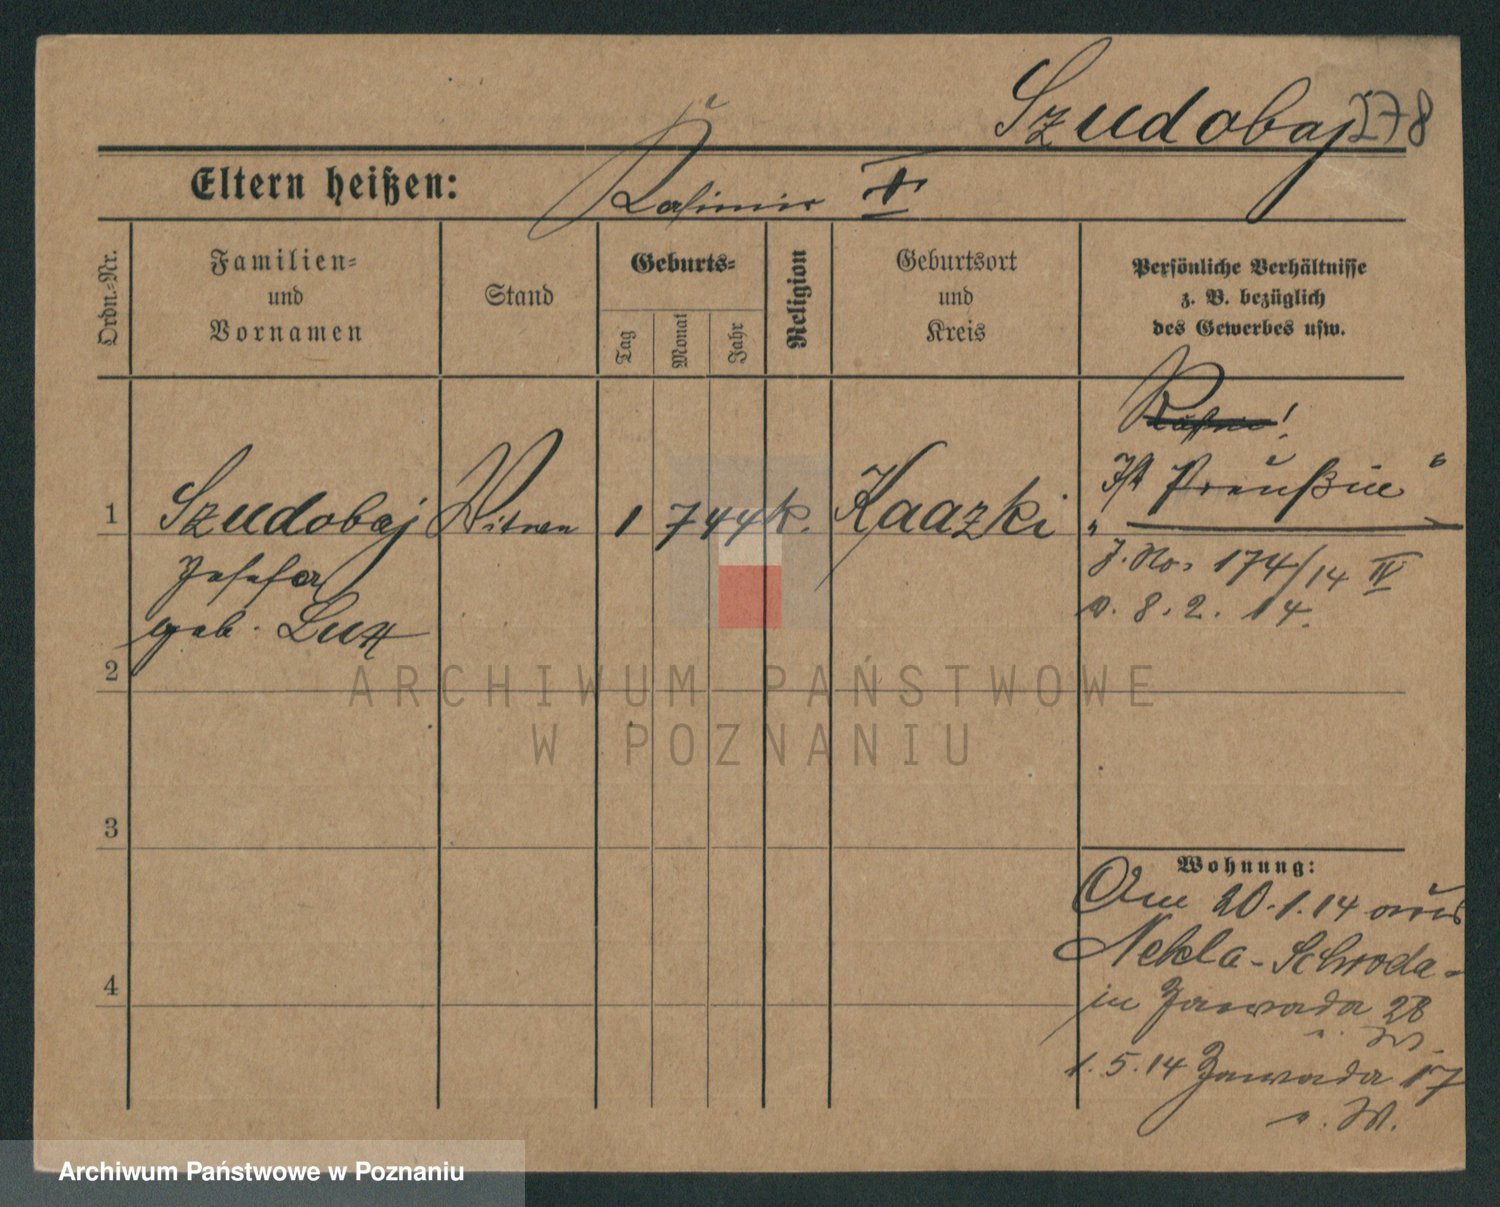 Szudobaj 278
Eltern heißen: Kasimir †
Ordn.-Nr.
Familien-
und
Vornamen
Stand
Geburts-
Tag
Monat
Jahr
Religion
Geburtsort
und
Kreis
Persönliche Verhältnisse
z. B. bezüglich
des Gewerbes usw.
Ist "Preußin"
J. No. 174/14 IV
v. 8. 2. 14.
1 Szudobaj Witwe 1 7 44 k. Kaazki
Josefa
geb. Lux
2
3
4
Wohnung:
Am 20.1.14 aus
Nekla-Schroda-
in Zawada 28
b. W.
1.5.14 Zawada 17
b. W.
ARCHIWUM PAŃSTWOWE
W POZNANIU
Archiwum Państwowe w Poznaniu